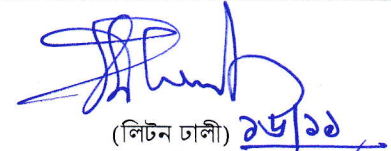 (লিটন ঢালী) ১৬/১১